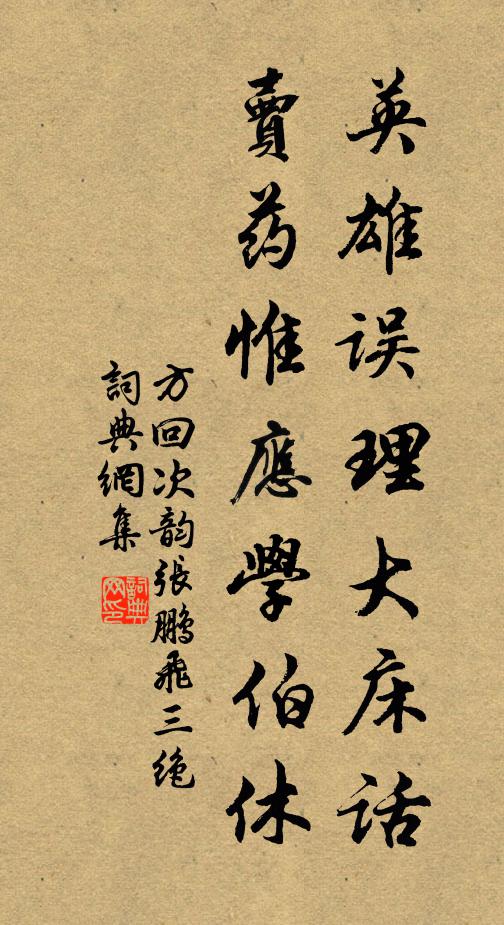 英雄误理大床话
賣药惟應學伯休
方回次韵張鵬飛三绝
詞典網集
詞典網印